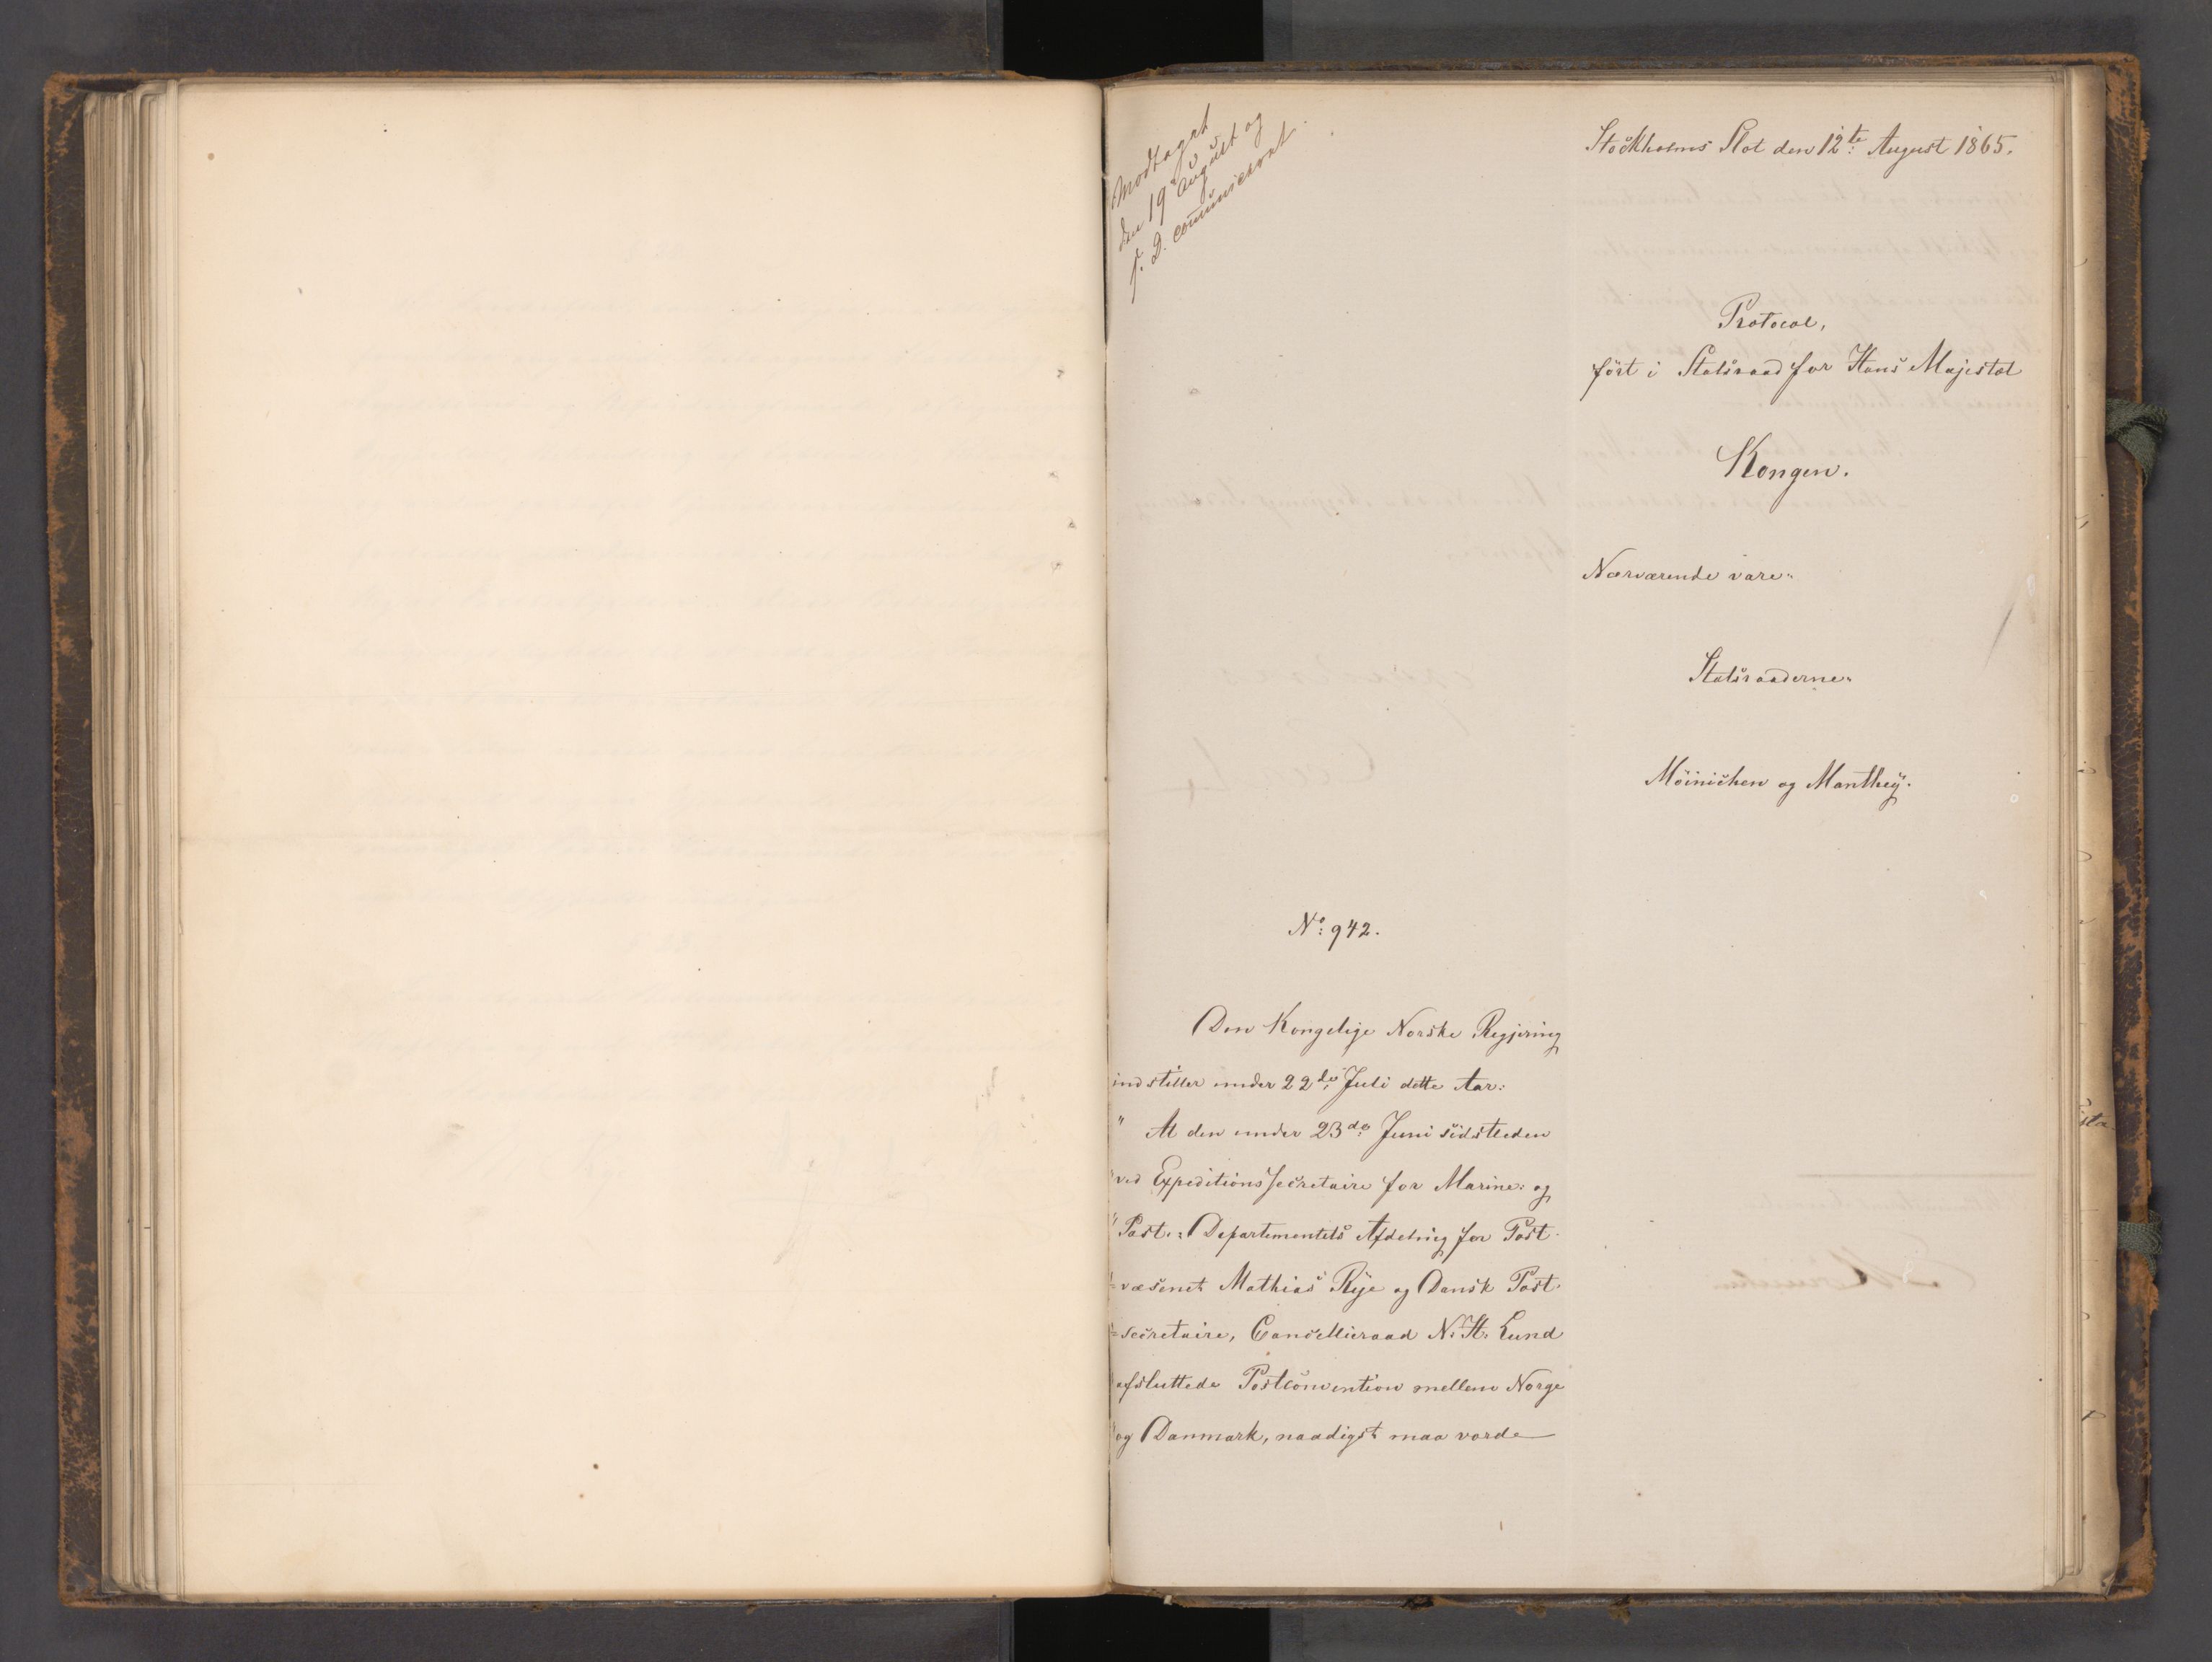 Modtaget
den 19 August og
s. D. com̄uniceret.
Stockholms Slot den 12te August 1865.
Protocol,
ført i Statsraad for Hans Majestæt
Kongen.
Nærværende vare:
Statsraaderne:
Möinichen og Manthey.
No: 942.
Den Kongelige Norske Regjering
indstiller under 22de Juli dette Aar:
" At den under 23de Juni sidstleden
" ved Expeditionssecretaire for Marine: og
" Post-: Departementets Afdeling for Post-
"væsenet Mathias Rye og Dansk Post-
"secretaire, Cancelliraad N. H. Lund
"afsluttede Postconvention mellem Norge
"og Danmark, naadigst maa vorde